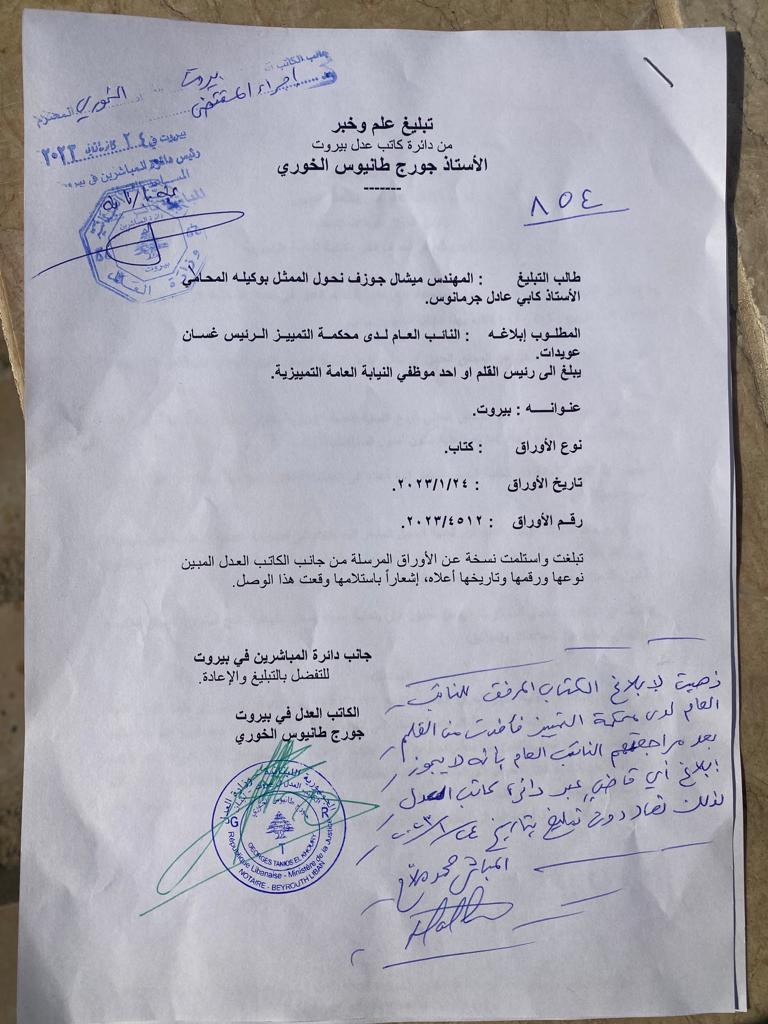 جانب الكاتب
بيروت
الخوري المحترم
اجراء المقتضى
بيروت في ٢٤ كانون ثاني ٢٠٢٣
رئيس دائرة المباشرين في بيروت
وزارة العدل
بيروت
تبليغ علم وخبر
من دائرة كاتب عدل بيروت
الأستاذ جورج طانيوس الخوري
-------
٨٥٤
طالب التبليغ : المهندس ميشال جوزف نحول الممثل بوكيله المحامي
الأستاذ كابي عادل جرمانوس.
المطلوب إبلاغه : النائب العام لدى محكمة التمييز الرئيس غسان
عويدات.
يبلغ الى رئيس القلم او احد موظفي النيابة العامة التمييزية.
عنوانه : بيروت.
نوع الأوراق : كتاب.
تاريخ الأوراق : ٢٠٢٣/١/٢٤.
رقم الأوراق : ٢٠٢٣/٤٥١٢.
تبلغت واستلمت نسخة عن الأوراق المرسلة من جانب الكاتب العدل المبين
نوعها ورقمها وتاريخها أعلاه، إشعاراً باستلامها وقعت هذا الوصل.
جانب دائرة المباشرين في بيروت
للتفضل بالتبليغ والإعادة.
الكاتب العدل في بيروت
جورج طانيوس الخوري
الجمهورية اللبنانية - وزارة العدل
G R
T
GEORGES TANIOS EL KHOURY
République Libanaise - Ministère de la Justice
NOTAIRE - BEYROUTH LIBAN
ذهبت لإبلاغ الكتاب المرفق للنائب
العام لدى محكمة التمييز فأفدت من القلم
بعد مراجعتهم النائب العام بأنه لا يجوز
إبلاغ أي قاضي عبر دائرة كاتب العدل
لذلك تعاد دون تبليغ بتاريخ ٢٠٢٣/١/٢٤
المباشر محمد